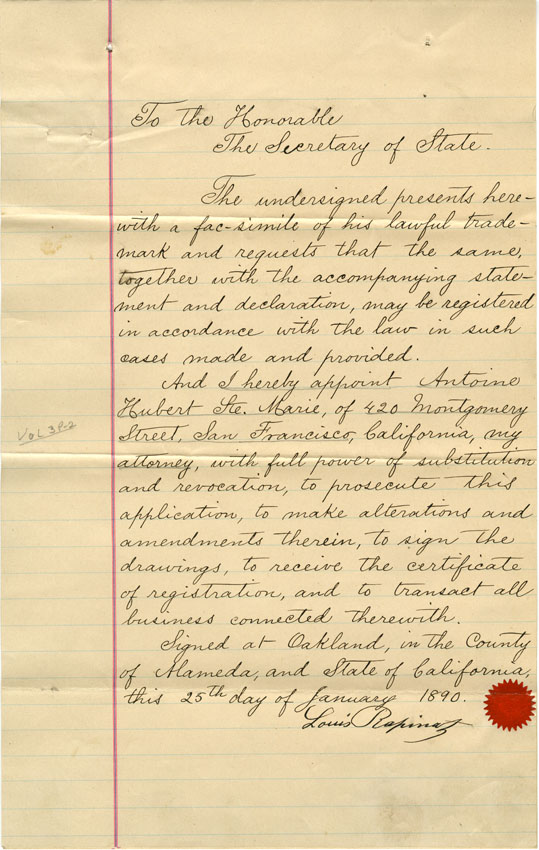 To the Honorable
The Secretary of State.
The undersigned presents here-
with a fac-simile of his lawful trade-
mark and requests that the same,
together with the accompanying state-
ment and declaration, may be registered
in accordance with the law in such
cases made and provided.
And I hereby appoint Antoine
Hubert Ste. Marie, of 420 Montgomery
Street, San Francisco, California, my
attorney, with full power of substitution
and revocation, to prosecute this
application, to make alterations and
amendments therein, to sign the
drawings, to receive the certificate
of registration, and to transact all
business connected therewith.
Signed at Oakland, in the County
of Alameda, and State of California,
this 25th day of January 1890.
Louis
Vol 3 P.2